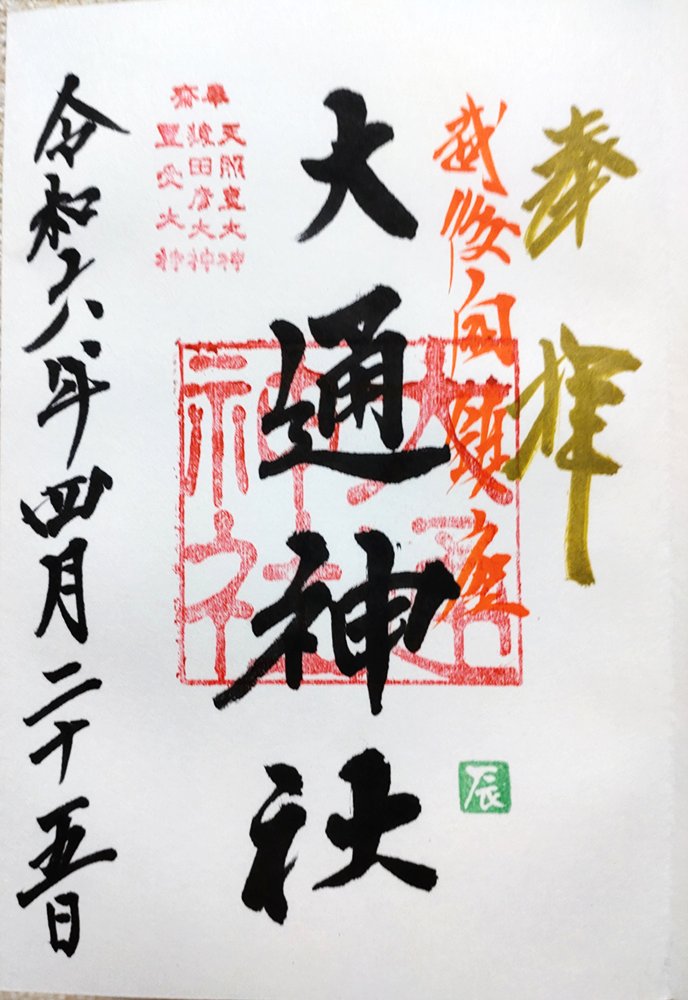 奉拝
越後国鎮座
大通神社
大通神社
辰
奉齋
天照皇大神
猿田彦大神
豊受大神
令和六年四月二十五日